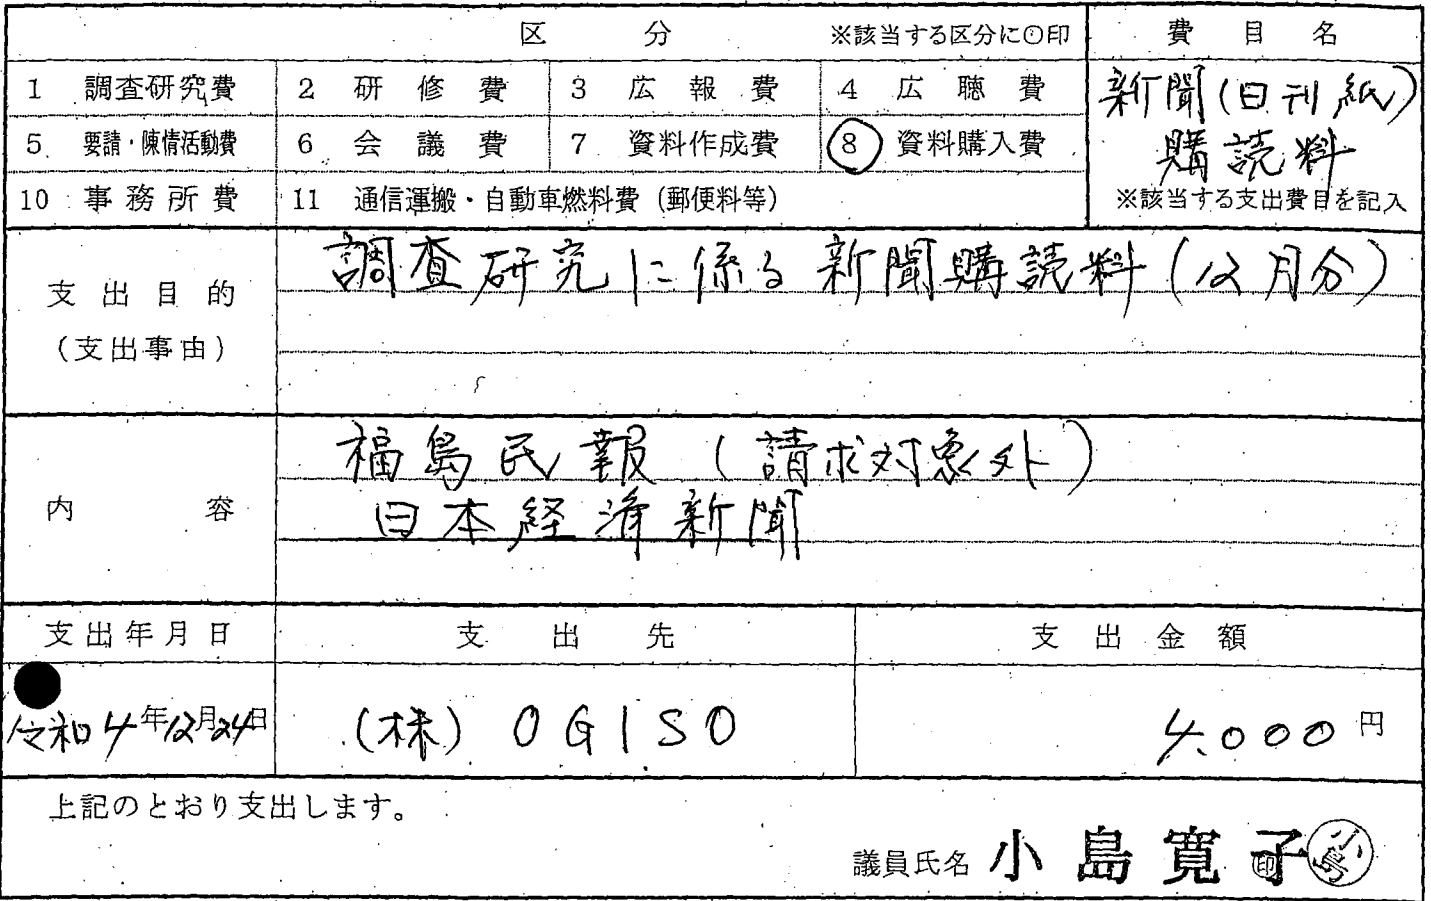 区 分 ※該当する区分に○印 費目名
1 調査研究費 2 研修費 3 広報費 4 広聴費 新聞(日刊紙)
5 要請・陳情活動費 6 会議費 7 資料作成費 8 資料購入費 購読料
10 事務所費 11 通信運搬・自動車燃料費(郵便料等) ※該当する支出費目を記入
支出目的 調査研究に係る新聞購読料(12月分)
(支出事由)
福島民報(請求対象外)
内容 日本経済新聞
支出年月日 支出先 支出金額
令和4年12月24日 (株)OGISO 4,000円
上記のとおり支出します。
議員氏名 小島寛子 印 小島